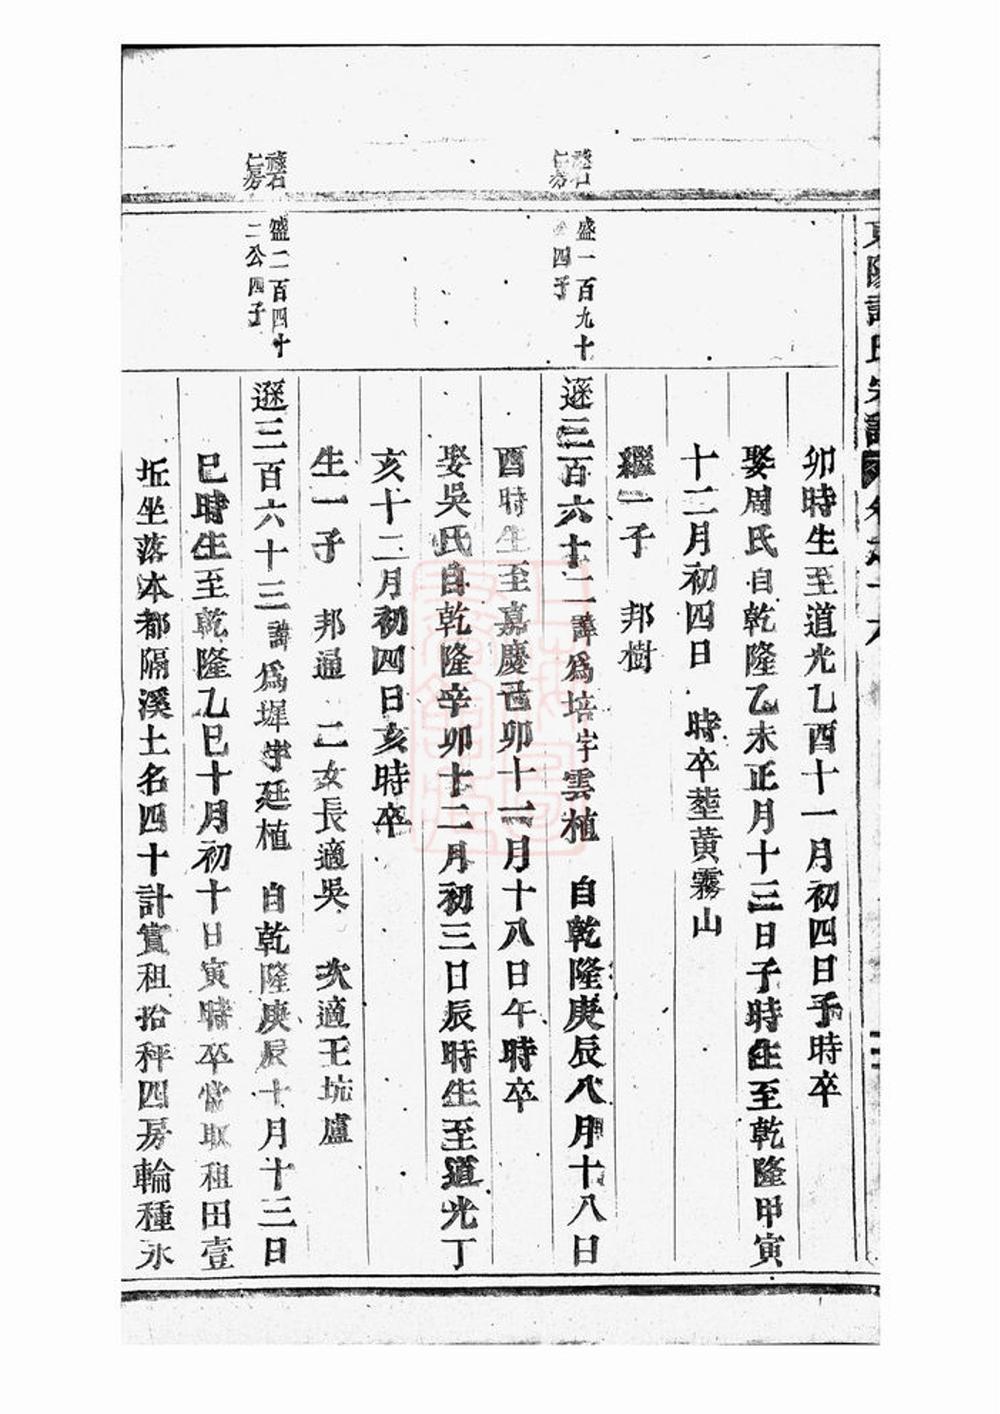 卯時生至道光乙酉十一月初四日子時卒
娶周氏自乾隆乙未正月十三日子時生至乾隆甲寅
十二月初四日 時卒塟黃霧山
繼一子 邦樹
盛一百九十
四子
遜三百六十二諱爲培字雲植 自乾隆庚辰八月十八日
酉時生至嘉慶己卯十一月十八日午時卒
娶吳氏自乾隆辛卯十二月初三日辰時生至道光丁
亥十二月初四日亥時卒
生一子 邦通 二女長適吳 次適王坑廬
盛二百四十
二公四子
遜三百六十三諱爲墀字廷植 自乾隆庚辰十月十三日
巳時生至乾隆乙巳十月初十日寅時卒當取租田壹
坵坐落本都隔溪土名四十計實租拾秤四房輪種永